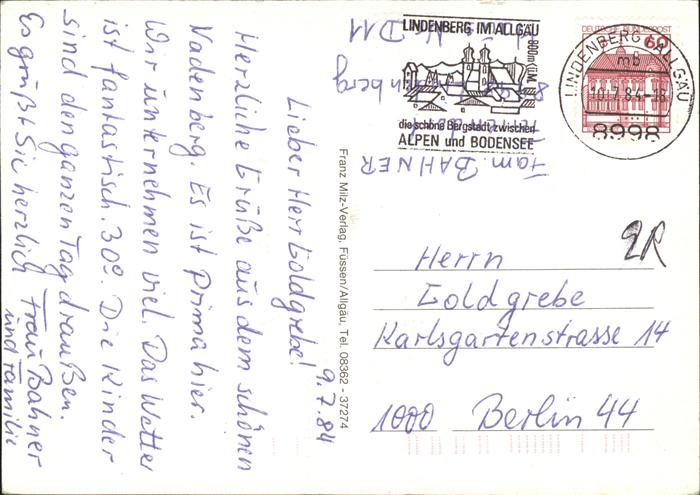 9.7.84
Lieber Herr Goldgrebe!
Herzliche Grüße aus dem schönen
Nadenberg. Es ist prima hier.
Wir unternehmen viel. Das Wetter
ist fantastisch. 30°. Die Kinder
sind den ganzen Tag draußen.
Es grüßt Sie herzlich Frau Bahner
und Familie
Franz Milz-Verlag, Füssen/Allgäu, Tel. 08362 - 37274
Fam. BAHNER
LINDENBERG IM ALLGÄU
800 m ü.M.
die schöne Bergstadt zwischen
ALPEN und BODENSEE
DEUTSCHE BUNDESPOST
60
LINDENBERG, ALLGÄU
mb
10.7.84-18
8998
Herrn
Goldgrebe
Karlsgartenstrasse 14
1000 Berlin 44